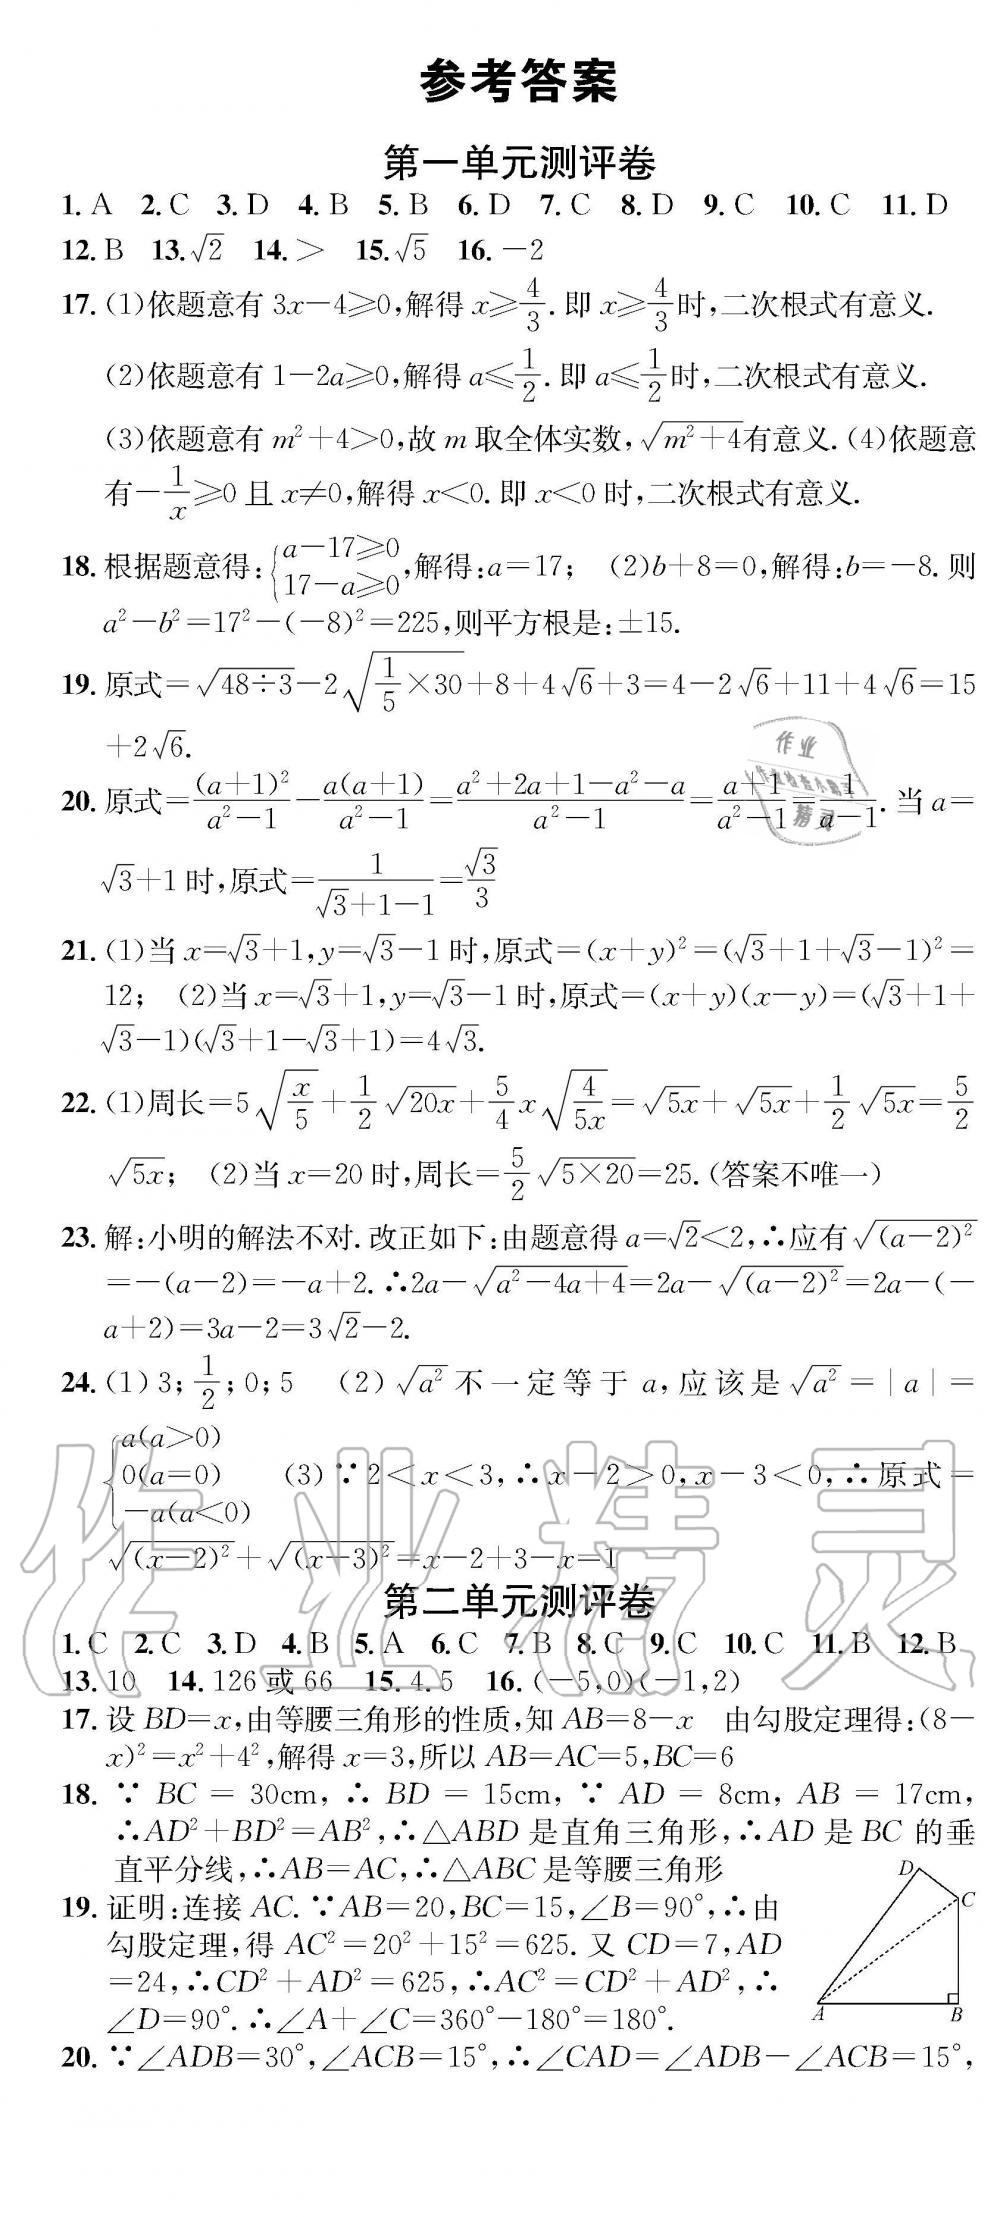 参考答案
第一单元测评卷
1. A 2. C 3. D 4. B 5. B 6. D 7. C 8. D 9. C 10. C 11. D
12. B 13. √2 14. > 15. √5 16. －2
17. (1)依题意有 3x－4≥0,解得 x≥4/3. 即 x≥4/3时,二次根式有意义.
(2)依题意有 1－2a≥0,解得 a≤1/2. 即 a≤1/2时,二次根式有意义.
(3)依题意有 m²＋4>0,故 m 取全体实数,√(m²＋4)有意义. (4)依题意
有－1/x≥0 且 x≠0,解得 x<0. 即 x<0 时,二次根式有意义.
18. 根据题意得:{a－17≥0 17－a≥0,解得:a＝17; (2)b＋8＝0,解得:b＝－8. 则
a²－b²＝17²－(－8)²＝225,则平方根是:±15.
19. 原式＝√(48÷3)－2√(1/5×30)＋8＋4√6＋3＝4－2√6＋11＋4√6＝15
＋2√6.
20. 原式＝(a＋1)²/(a²－1)－a(a＋1)/(a²－1)＝(a²＋2a＋1－a²－a)/(a²－1)＝(a＋1)/(a²－1)＝1/(a－1). 当 a＝
√3＋1 时,原式＝1/(√3＋1－1)＝√3/3
21. (1)当 x＝√3＋1,y＝√3－1 时,原式＝(x＋y)²＝(√3＋1＋√3－1)²＝
12; (2)当 x＝√3＋1,y＝√3－1 时,原式＝(x＋y)(x－y)＝(√3＋1＋
√3－1)(√3＋1－√3＋1)＝4√3.
22. (1)周长＝5√(x/5)＋1/2√(20x)＋5/4x√(4/(5x))＝√(5x)＋√(5x)＋1/2√(5x)＝5/2
√(5x); (2)当 x＝20 时,周长＝5/2√(5×20)＝25. (答案不唯一)
23. 解:小明的解法不对. 改正如下:由题意得 a＝√2<2,∴应有√((a－2)²)
＝－(a－2)＝－a＋2. ∴2a－√(a²－4a＋4)＝2a－√((a－2)²)＝2a－(－
a＋2)＝3a－2＝3√2－2.
24. (1) 3; 1/2; 0; 5 (2) √(a²) 不一定等于 a, 应该是 √(a²) ＝ | a | ＝
{a(a>0)
0(a＝0) (3) ∵ 2＜x＜3, ∴ x－2＞0, x－3＜0, ∴ 原式＝
－a(a<0)
√((x－2)²)＋√((x－3)²)＝x－2＋3－x＝1
第二单元测评卷
1. C 2. C 3. D 4. B 5. A 6. C 7. B 8. C 9. C 10. C 11. B 12. B
13. 10 14. 126 或 66 15. 4. 5 16. (－5,0)(－1,2)
17. 设 BD＝x,由等腰三角形的性质,知 AB＝8－x 由勾股定理得:(8－
x)²＝x²＋4²,解得 x＝3,所以 AB＝AC＝5,BC＝6
18. ∵ BC ＝ 30cm, ∴ BD ＝ 15cm, ∵ AD ＝ 8cm, AB ＝ 17cm,
∴AD²＋BD²＝AB²,∴△ABD 是直角三角形,∴AD 是 BC 的垂
直平分线,∴AB＝AC,∴△ABC 是等腰三角形
19. 证明:连接 AC. ∵AB＝20,BC＝15,∠B＝90°,∴由
勾股定理,得 AC²＝20²＋15²＝625. 又 CD＝7,AD
＝24,∴CD²＋AD²＝625,∴AC²＝CD²＋AD²,∴
∠D＝90°. ∴∠A＋∠C＝360°－180°＝180°.
D
C
A
B
20. ∵∠ADB＝30°,∠ACB＝15°,∴∠CAD＝∠ADB－∠ACB＝15°,
作业
作业检查小助手
精灵
作业精灵